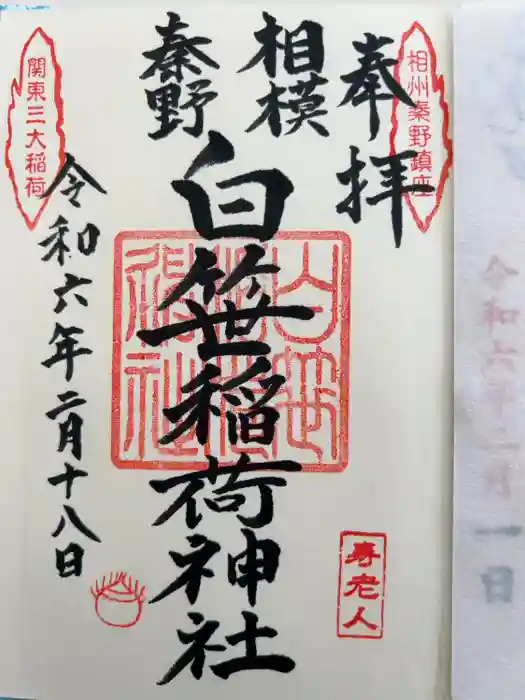 相州秦野鎮座
奉拝
相模
秦野
白笹稲荷神社
白笹稲荷神社
寿老人
関東三大稲荷
令和六年二月十八日